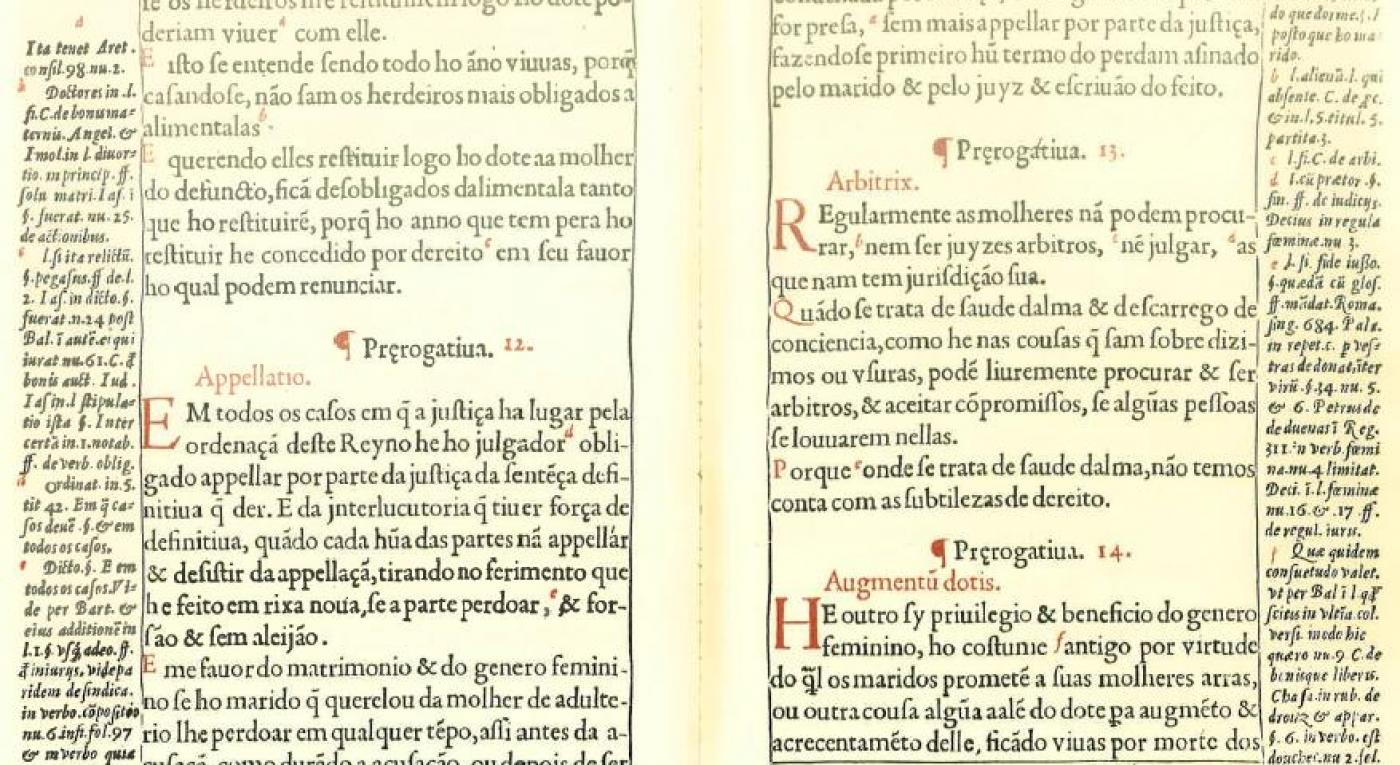 a
Ita tenet Aret.
consil.98.nu.2.
b
Doctores in .l.
fi.C.de bonis ma-
ternis. Angel. &
Imol.in l. diuor-
tio. in princip. ff.
solu. matri. Iaſ. i
§. fuerat. nu. 25.
de actionibus.
c l.ſi ita relictū.
§.pegaſus.ff de.l.
2. Iaſ. in dicto.§.
fuerat.n.24 poſt
Bal. ī autē.ei qui
iurat nu.61.C.đ
bonis auct. Iud.
Iaſ in.l ſtipula-
tio iſta §. Inter
certā in.1.notab.
ff. de verb. oblig.
d ordinat. in.5.
tit 42. Em q̄ ca-
ſos deuē .§.& em
todos os caſos.
e Dicto.§. E em
todos os caſos.
de per Bart. &
eius additionē in
l.1.§ vſq̄ adeo. ff.
đ iniurijs. vide pa
ridem de ſindica.
in verbo.cōpoſitio
nu.6 infi.fol.97
& in verbo quia
deriam viuer a com elle.
E iſto ſe entende ſendo todo ho áno viuuas, porq̄
caſandoſe, não ſam os herdeiros mais obligados a
alimentalas b.
E querendo elles reſtituir logo ho dote aa molher
do defuncto, ficã deſobligados dalimentala tanto
que ho reſtituirẽ, porq̄ ho anno que tem pera ho
reſtituir he concedido por dereito c em ſeu fauor
ho qual podem renunciar.
¶ Pręrogatiua. 12.
Appellatio.
E M todos os caſos em q̄ a juſtiça ha lugar pela
ordenaçã deſte Reyno he ho julgador d obli-
gado appellar por parte da juſtiça da ſentẽça defi-
nitiua q̄ der. E da jnterlucutoria q̄ tiuer força de
definitiua, quãdo cada hũa das partes nã appellár
& deſiſtir da appellaçã, tirando no ferimento que
he feito em rixa noua, ſe a parte perdoar, e & for-
ſão & ſem aleijão.
E me fauor do matrimonio & do genero femini-
no ſe ho marido q̄ querelou da molher de adulte-
rio lhe perdoar em qualquer tẽpo, aſſi antes da a-
for preſa, a ſem mais appellar por parte da juſtiça,
fazendoſe primeiro hũ termo do perdam aſinado
pelo marido & pelo juyz & eſcriuão do feito.
¶ Pręrogatiua. 13.
Arbitrix.
R Egularmente as molheres nã podem procu-
rar, b nem ſer juyzes arbitros, c nẽ julgar, d as
que nam tem juriſdição ſua.
Quãdo ſe trata de ſaude dalma & deſcarrego de
conciencia, como he nas couſas q̄ ſam ſobre dizi-
mos ou vſuras, podẽ liuremente procurar & ſer
arbitros, & aceitar cõpromiſſos, ſe algũas peſſoas
ſe louuarem nellas.
Porque e onde ſe trata de ſaude dalma, não temos
conta com as ſubtilezas de dereito.
¶ Pręrogatiua. 14.
Augmentū dotis.
H E outro ſy priuilegio & beneficio do genero
feminino, ho coſtume f antigo por virtude
do q̄l os maridos prometẽ a ſuas molheres arras,
ou outra couſa algũa aalẽ do dote pa augmẽto &
acrecentamẽto delle, ficãdo viuas por morte dos
do que dorme.
poſto que ho ma-
rido.
b l.alienā.l. qui
abſente. C. de
& in.l.5.titul. 5.
partita.3.
c l.fi.C. de arbi.
d l.cū prætor .§.
fin. ff. de iudicijs.
Decius in regula
fœminæ.nu 3.
e l.ſi. fide iuſſo.
§.quædā cū gloſ.
ff.mādat.Roma.
ſing. 684. Pala.
in repet.c. p veſ-
tras de donat.īter
virū.§.34. nu. 5.
& 6. Petrus de
de duenas ī Reg.
311.in verb. fœmi
na.nu.4 limitat.
Deci. ī.l.fœminæ
nu.16.& .17 .ff.
de regul. iuris.
f Quæ quidem
conſuetudo valet.
vt per Bal ī l q̄
ſcitis in vltīa.col.
verſi. modo hic
quæro nu.9 C. de
bonisque liberis.
Chaſ.in rub. de
droiz & appar.
§. 6. in verbo.eſt